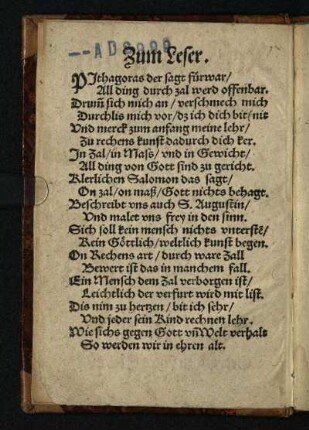 Zum Leser.
PIthagoras der sagt fürwar/
All ding durch zal werd offenbar.
Drumm̃ sich mich an/ verschmech mich
Durchlis mich vor/ dz ich dich bit/ nit
Vnd merck zum anfang meine lehr/
Zu rechens kunst dadurch dich ker.
In Zal/ in Mass/ vnd in Gewicht/
All ding von Gott sind zu gericht.
Klerlichen Salomon das sagt/
On zal/ on maß/ Gott nichts behagt.
Beschreibt vns auch S. Augustin/
Vnd malet vns frey in den sinn.
Sich soll kein mensch nichts vnterstẽ/
Kein Göttlich/ weltlich kunst begen.
On Rechens art/ durch ware Zall
Bewert ist das in manchem fall.
Ein Mensch dem Zal verborgen ist/
Leichtlich der verfurt wird mit list.
Dis nim zu hertzen/ bit ich sehr/
Vnd jeder sein Kind rechnen lehr.
Wie sichs gegen Gott vñ Welt verhalt
So werden wir in ehren alt.